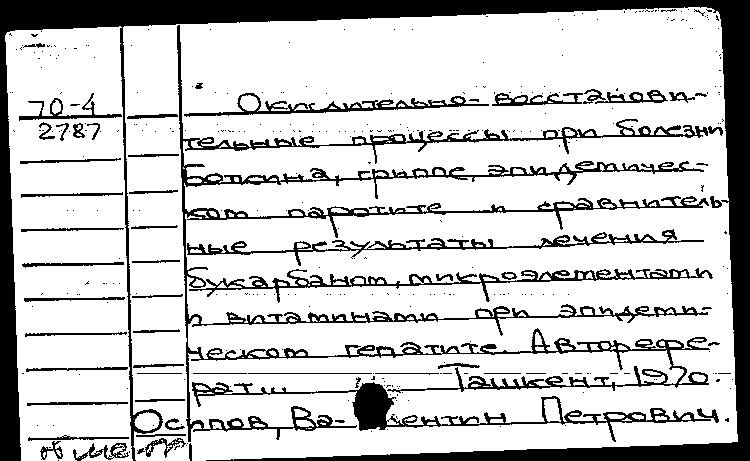 70-4
2787
Окислительно-восстанови-
тельные процессы при болезни
Боткина, гриппе, эпидемичес-
ком паротите и сравнитель-
ные результаты лечения
букарбаном, микроэлементами
и витаминами при эпидеми-
ческом гепатите. Авторефе-
рат... Ташкент, 1970.
Осипов, Ва-лентин Петрович.